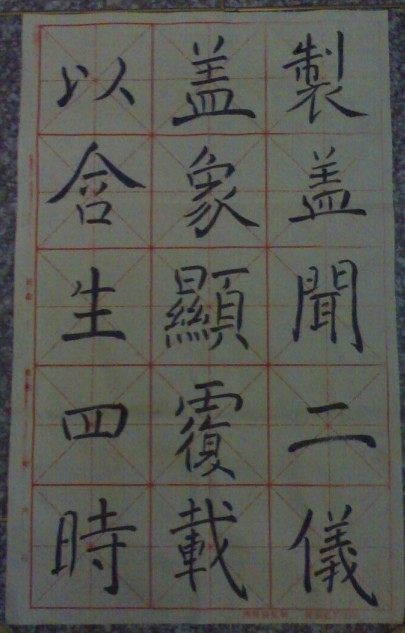 製盖聞二儀
盖象顯覆載
以含生四時